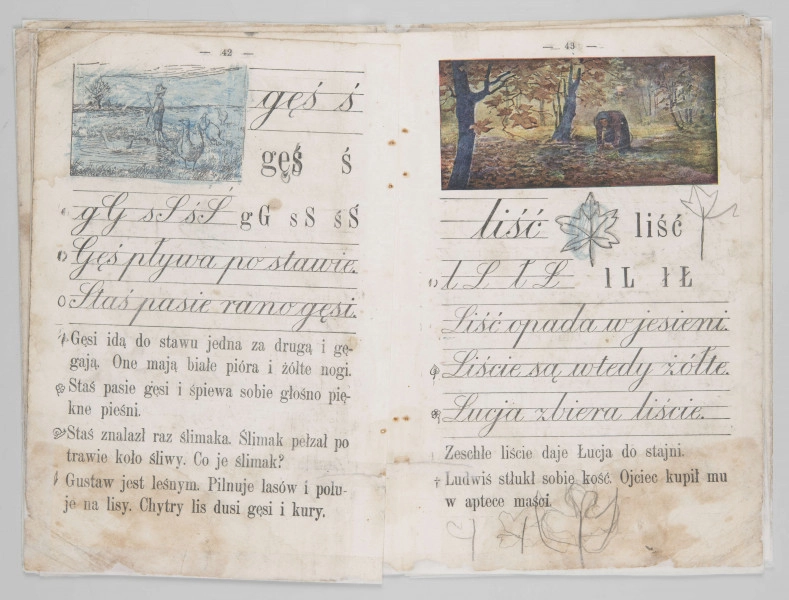 — 42 —
gęś ś
gęś ś
gG sS śŚ gG sS śŚ
Gęś pływa po stawie.
Staś pasie rano gęsi.
Gęsi idą do stawu jedna za drugą i gę-
gają. One mają białe pióra i żółte nogi.
Staś pasie gęsi i śpiewa sobie głośno pię-
kne pieśni.
Staś znalazł raz ślimaka. Ślimak pełzał po
trawie koło śliwy. Co je ślimak?
Gustaw jest leśnym. Pilnuje lasów i polu-
je na lisy. Chytry lis dusi gęsi i kury.
— 43 —
liść liść
l L ł Ł l L ł Ł
Liść opada w jesieni.
Liście są wtedy żółte.
Łucja zbiera liście.
Zeschle liście daje Łucja do stajni.
Ludwiś stłukł sobie kość. Ojciec kupił mu
w aptece maści.